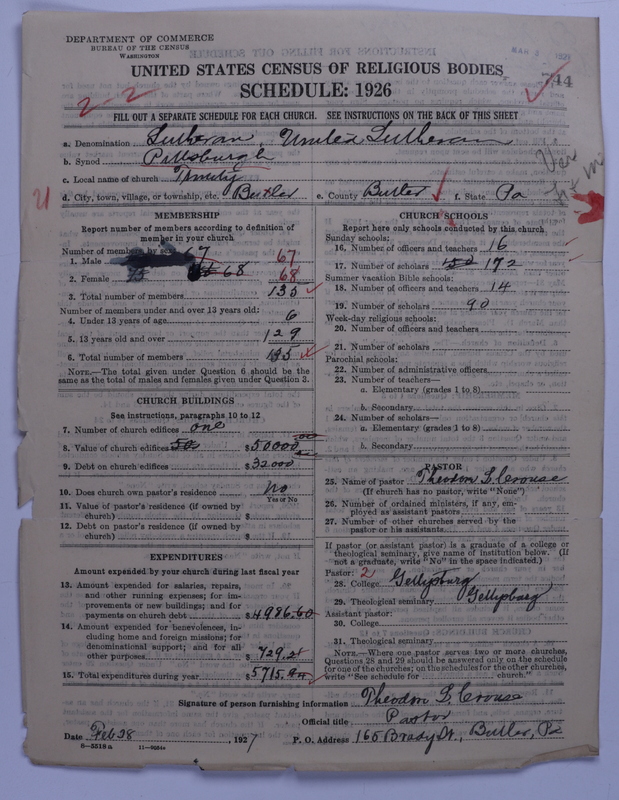 DEPARTMENT OF COMMERCE
BUREAU OF THE CENSUS
WASHINGTON
MAR 3 1927
UNITED STATES CENSUS OF RELIGIOUS BODIES
SCHEDULE: 1926
44
2-2
FILL OUT A SEPARATE SCHEDULE FOR EACH CHURCH. SEE INSTRUCTIONS ON THE BACK OF THIS SHEET
a. Denomination Lutheran United Lutheran
b. Synod Pittsburgh
c. Local name of church Trinity
d. City, town, village, or township, etc. Butler e. County Butler f. State Pa
MEMBERSHIP
Report number of members according to definition of
member in your church
Number of members by sex:
1. Male 67
2. Female 68 68
3. Total number of members 135
Number of members under and over 13 years old:
4. Under 13 years of age 6
5. 13 years old and over 129
6. Total number of members 135
NOTE.—The total given under Question 6 should be the
same as the total of males and females given under Question 3.
CHURCH BUILDINGS
See instructions, paragraphs 10 to 12
7. Number of church edifices one
8. Value of church edifices $50000
9. Debt on church edifices $32000
10. Does church own pastor's residence No
Yes or No
11. Value of pastor's residence (if owned by
church) $
12. Debt on pastor's residence (if owned by
church) $
EXPENDITURES
Amount expended by your church during last fiscal year
13. Amount expended for salaries, repairs,
and other running expenses; for im-
provements or new buildings; and for
payments on church debt $4986.60
14. Amount expended for benevolences, in-
cluding home and foreign missions; for
denominational support; and for all
other purposes 729.21
15. Total expenditures during year $5715.
CHURCH SCHOOLS
Report here only schools conducted by this church
Sunday schools:
16. Number of officers and teachers 16
17. Number of scholars 150 172
Summer vacation Bible schools:
18. Number of officers and teachers 14
19. Number of scholars 90
Week-day religious schools:
20. Number of officers and teachers
21. Number of scholars
Parochial schools:
22. Number of administrative officers
23. Number of teachers—
a. Elementary (grades 1 to 8)
b. Secondary
24. Number of scholars—
a. Elementary (grades 1 to 8)
b. Secondary
PASTOR
25. Name of pastor Theodore L. Crouse
(If church has no pastor, write "None")
26. Number of ordained ministers, if any, em-
ployed as assistant pastors
27. Number of other churches served by the
pastor or his assistants
If pastor (or assistant pastor) is a graduate of a college or
theological seminary, give name of institution below. (If
not a graduate, write "No" in the space indicated.)
Pastor: 2
28. College Gettysburg
29. Theological seminary Gettysburg
Assistant pastor:
30. College
31. Theological seminary
NOTE.—Where one pastor serves two or more churches,
Questions 28 and 29 should be answered only on the schedule
for one of the churches; on the schedules for the other churches,
write "See schedule for church."
Signature of person furnishing information Theodore L. Crouse
Official title Pastor
Date Feb 28, 1927 P. O. Address 165 Brady St., Butler, Pa
8-5518a 11-9054a